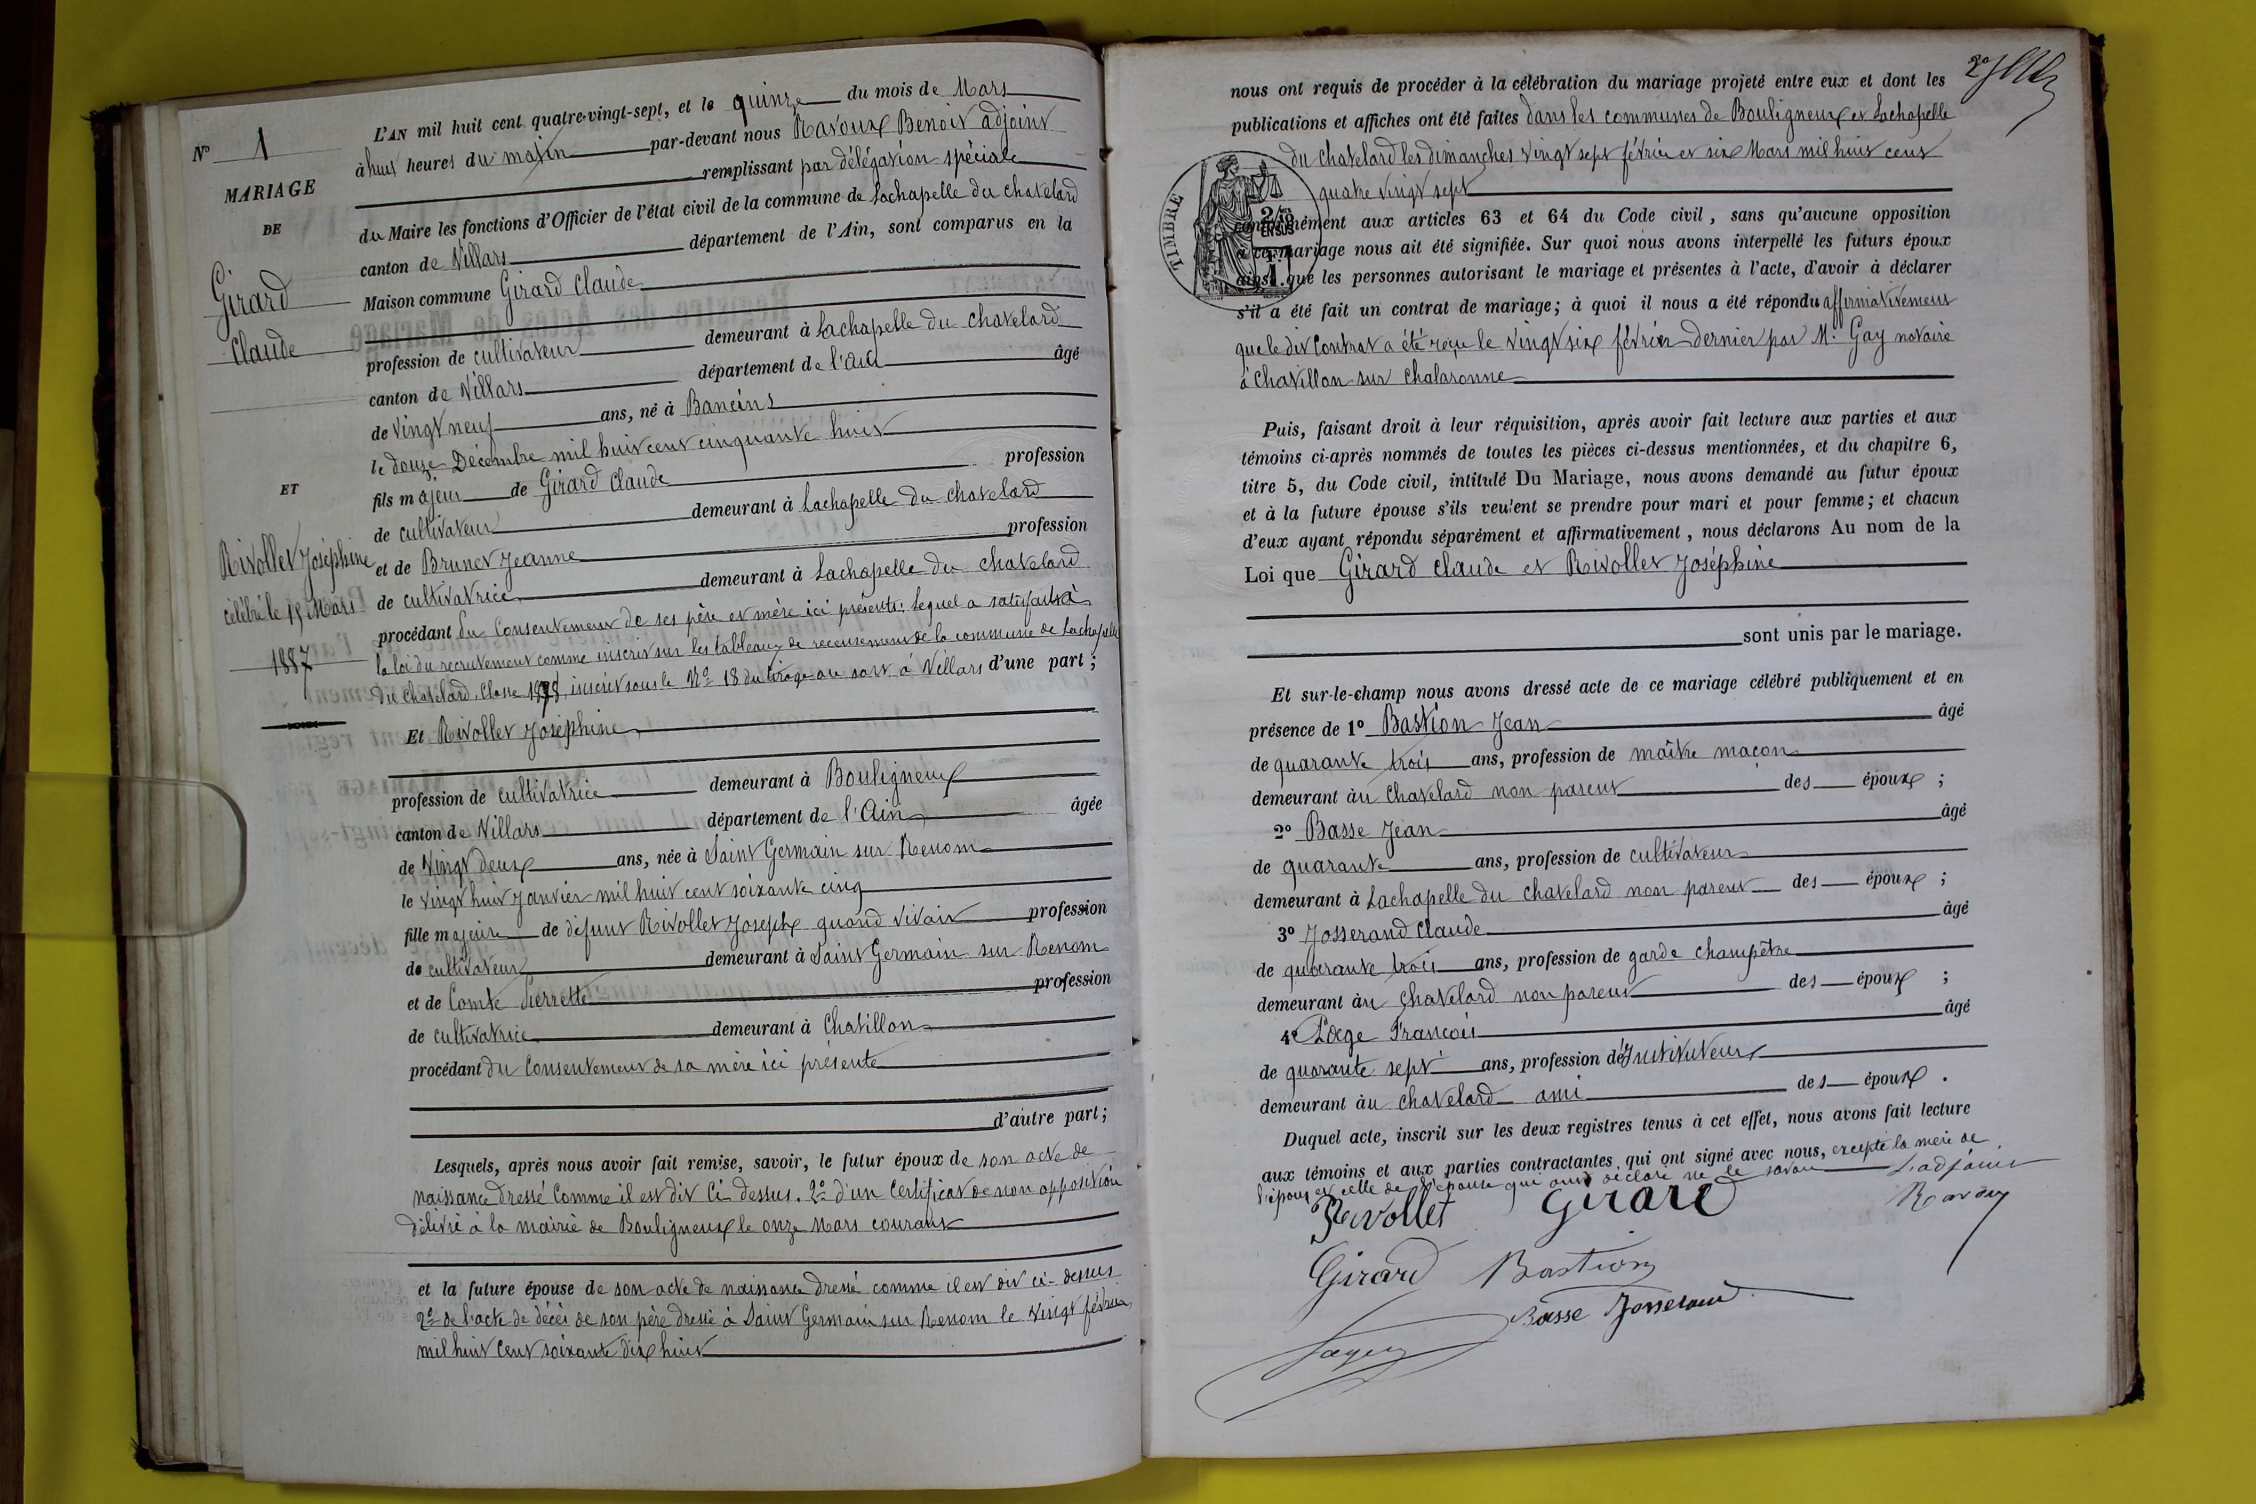 N° 1
MARIAGE
DE
Girard
Claude
ET
Rivollet Joséphine
célébré le 15 Mars
1887
L'AN mil huit cent quatre-vingt-sept, et le quinze du mois de Mars
à huit heures du matin par-devant nous Ravoux Benoit adjoint
remplissant par délégation spéciale
du Maire les fonctions d'Officier de l'état civil de la commune de Lachapelle du chatelard
canton de Villars département de l'Ain, sont comparus en la
Maison commune Girard Claude
profession de cultivateur demeurant à Lachapelle du Chatelard
canton de Villars département de l'ain âgé
de vingt neuf ans, né à Baneins
le douze Décembre mil huit cent cinquante huit
fils majeur de Girard Claude profession
de cultivateur demeurant à Lachapelle du Chatelard
et de Brunet Jeanne profession
de cultivatrice demeurant à Lachapelle du chatelard
procédant du Consentement de ses père et mère ici présents. Lequel a satisfait à
la loi du recrutement comme inscrit sur les tableaux de recensement de la commune de Lachapelle
du chatelard, Classe 1878, inscrit sous le N° 18 du tirage au sort à Villars d'une part ;
Et Rivollet Joséphine
profession de cultivatrice demeurant à Bouligneux
canton de Villars département de l'Ain âgée
de vingt deux ans, née à Saint Germain sur Renom
le vingt huit Janvier mil huit cent soixante cinq
fille majeure de défunt Rivollet Joseph quand vivait profession
de cultivateur demeurant à Saint Germain sur Renom
et de Comte Pierrette profession
de cultivatrice demeurant à Chatillon
procédant du Consentement de sa mère ici présente
d'autre part ;
Lesquels, après nous avoir fait remise, savoir, le futur époux de son acte de
naissance dressé comme il est dit ci-dessus. 2° d'un certificat de non opposition
délivré à la mairie de Bouligneux le onze Mars courant
et la future épouse de son acte de naissance dressé comme il est dit ci-dessus
2° de l'acte de décès de son père dressé à Saint Germain sur Renom le vingt février
mil huit cent soixante dix huit
2e
nous ont requis de procéder à la célébration du mariage projeté entre eux et dont les
publications et affiches ont été faites dans les communes de Bouligneux et Lachapelle
du chatelard les dimanches vingt sept février et six Mars mil huit cent
quatre vingt sept
TIMBRE
conformément aux articles 63 et 64 du Code civil, sans qu'aucune opposition
à ce mariage nous ait été signifiée. Sur quoi nous avons interpellé les futurs époux
ainsi que les personnes autorisant le mariage et présentes à l'acte, d'avoir à déclarer
s'il a été fait un contrat de mariage ; à quoi il nous a été répondu affirmativement
que le dit Contrat a été reçu le vingt six février dernier par M. Gay notaire
à Chatillon sur Chalaronne
Puis, faisant droit à leur réquisition, après avoir fait lecture aux parties et aux
témoins ci-après nommés de toutes les pièces ci-dessus mentionnées, et du chapitre 6,
titre 5, du Code civil, intitulé Du Mariage, nous avons demandé au futur époux
et à la future épouse s'ils veulent se prendre pour mari et pour femme ; et chacun
d'eux ayant répondu séparément et affirmativement, nous déclarons Au nom de la
Loi que Girard Claude et Rivollet Joséphine
sont unis par le mariage.
Et sur-le-champ nous avons dressé acte de ce mariage célébré publiquement et en
présence de 1° Bastion Jean âgé
de quarante trois ans, profession de maître maçon
demeurant au Chatelard non parent des époux ;
2° Basse Jean âgé
de quarante ans, profession de cultivateur
demeurant à Lachapelle du chatelard non parent des époux ;
3° Josserand Claude âgé
de quarante trois ans, profession de garde champêtre
demeurant au chatelard non parent des époux ;
4° François âgé
de quarante sept ans, profession d'Instituteur
demeurant au chatelard ami des époux .
Duquel acte, inscrit sur les deux registres tenus à cet effet, nous avons fait lecture
aux témoins et aux parties contractantes, qui ont signé avec nous, excepté la mère de
l'époux et celle de l'épouse qui ont déclaré ne le savoir L'adjoint
Rivollet Girard Ravoux
Girard Bastion
Basse Josserand